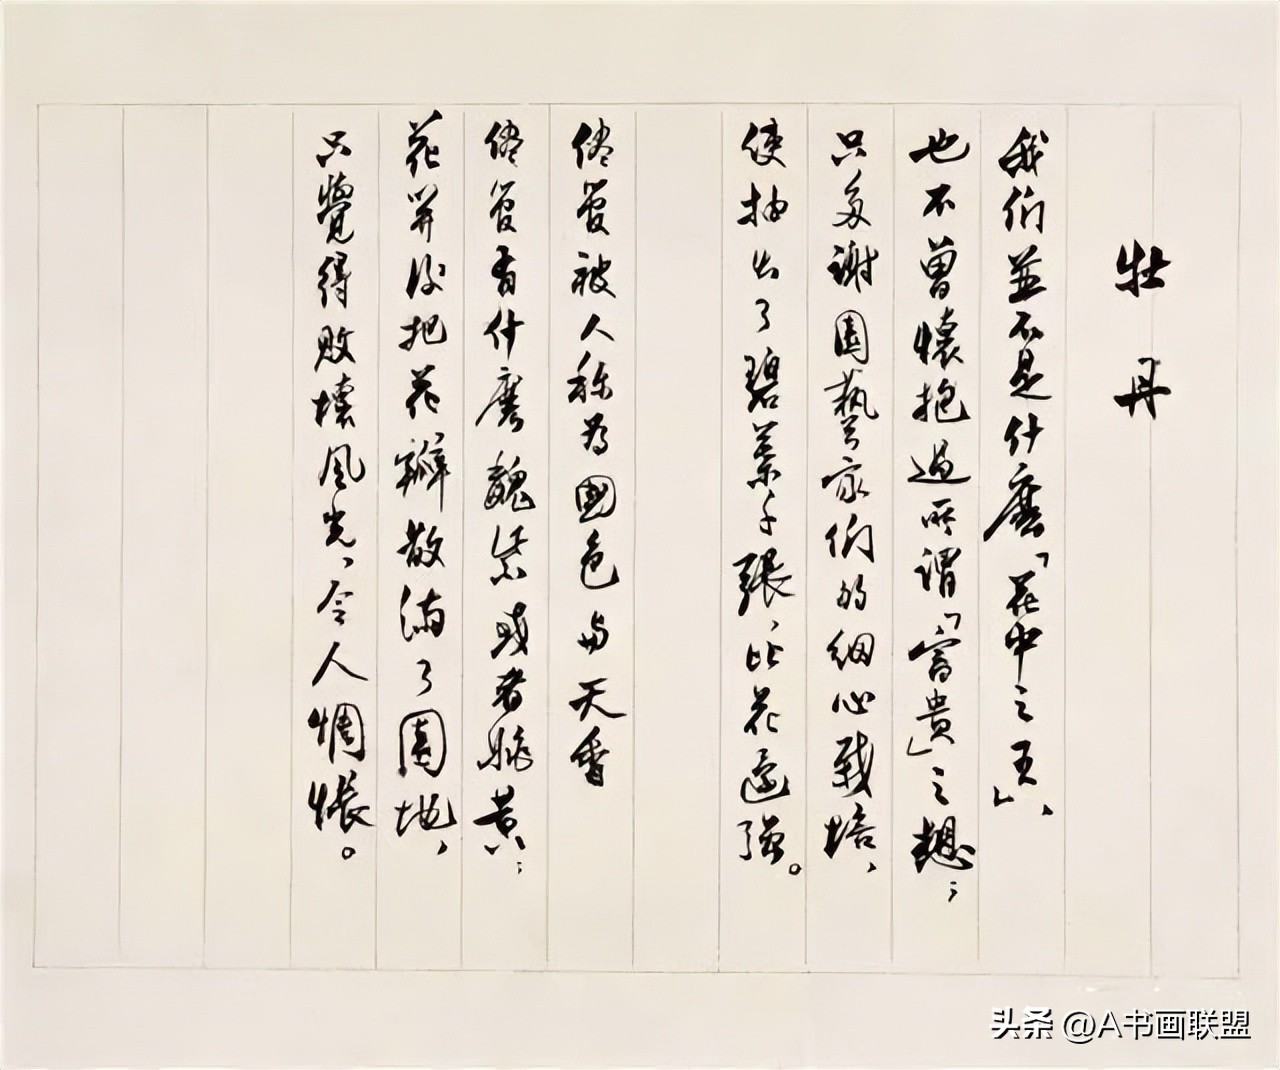 牡丹
我们並不是什麽「花中之王」、
也不曾懷抱過所謂「富贵」之想；
只多谢園藝家们的细心栽培、
使抽出了碧葉千張、比花還强。
儘管被人称为國色与天香
儘管有什麽魏紫或者姚黄；
花开后把花瓣散满了園地、
只觉得败壞風光、令人惆悵。
头条 @A书画联盟